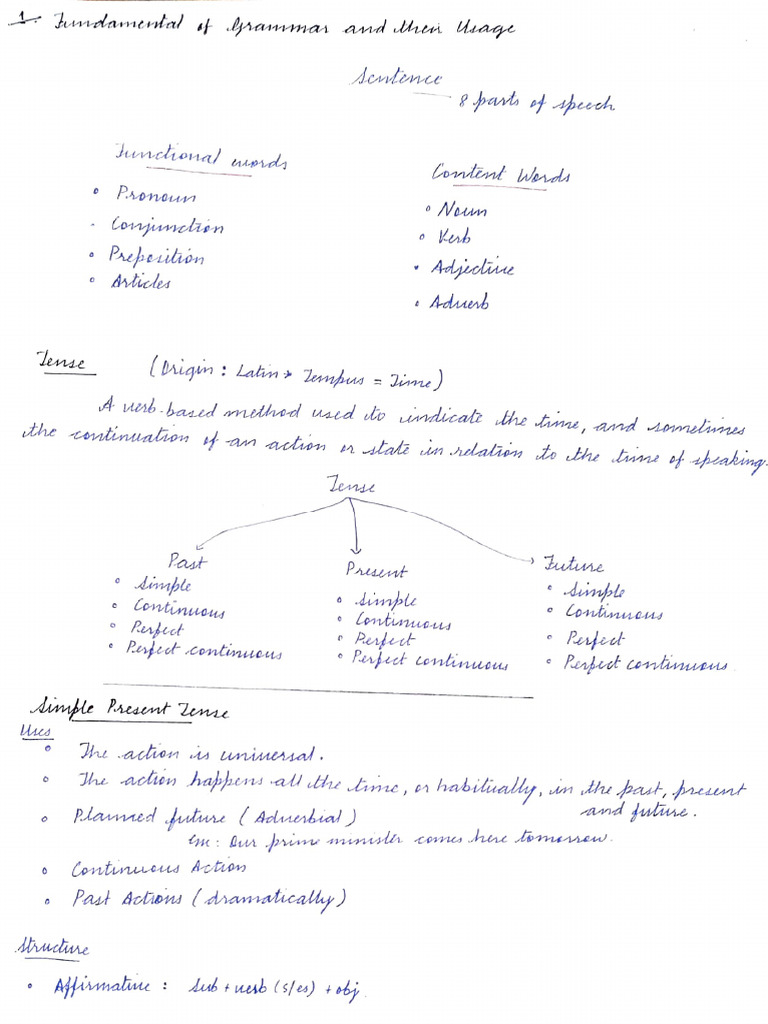 1. Fundamental of Grammar and their Usage
Sentence
8 parts of speech
Functional words
• Pronoun
- Conjunction
• Preposition
• Articles
Content Words
• Noun
• Verb
• Adjective
• Adverb
Tense (Origin : Latin → Tempus = Time)
A verb-based method used to indicate the time, and sometimes
the continuation of an action or state in relation to the time of speaking.
Tense
Past
• Simple
• Continuous
• Perfect
• Perfect continuous
Present
• Simple
• Continuous
• Perfect
• Perfect continuous
Future
• Simple
• Continuous
• Perfect
• Perfect continuous
Simple Present Tense
Uses
• The action is universal.
• The action happens all the time, or habitually, in the past, present
and future.
• Planned future (Adverbial)
Em: Our prime minister comes here tomorrow.
• Continuous Action
• Past Actions (dramatically)
Structure
• Affirmative : Sub + verb (s/es) + obj